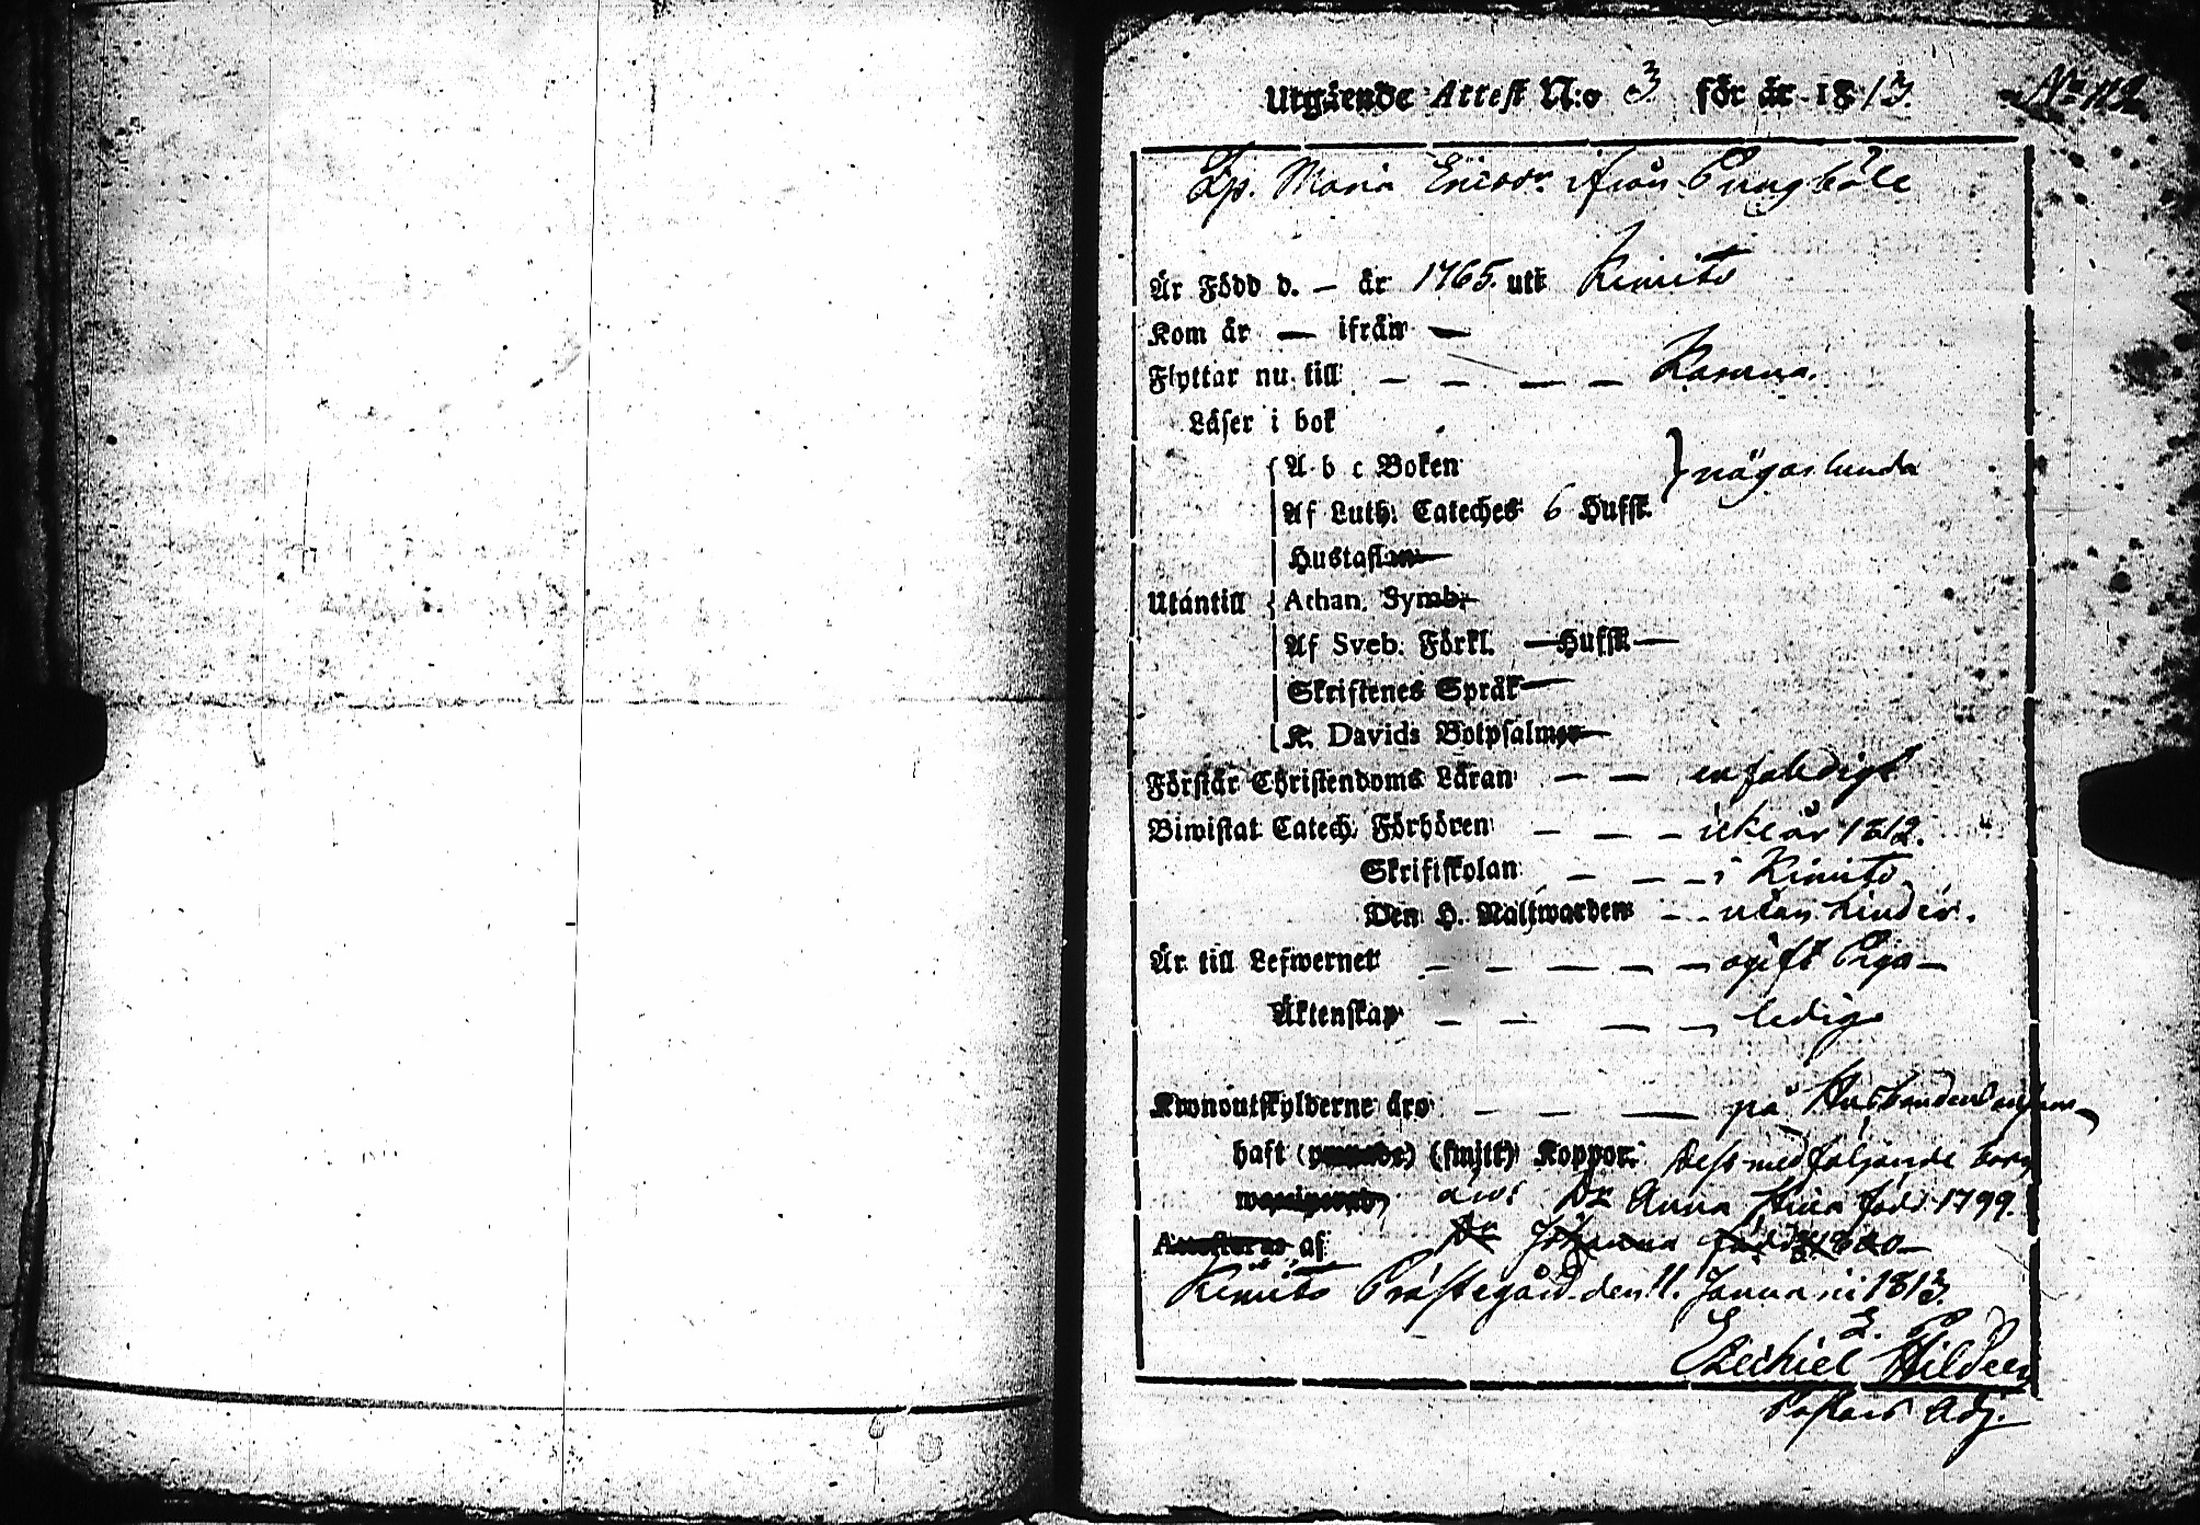 Utgående Attest N:o 3 för år 1813. No 112
Zp. Maria Ericsdr ifrån Pungböle
Är Född d. — år 1765. uti Kimito
Kom år — ifrån —
Flyttar nu till — — — —
Läser i bok
A b c Boken } någorlunda
Af Luth. Cateches 6 Hufst.
Hustaflan
Utantill Athan. Symb.
Af Sveb. Förkl. — Hufst —
Skriftenes Språk
K. Davids Botpsalmer
Förstår Christendoms Läran — — enfaldigt
Biwistat Catech. Förhören — — — år 1812.
Skriftskolan — — — i Kimito
Den H. Nattwarden — — utan hinder.
Är till Lefwernet — — — — — ogift Piga —
Äktenskap — — — — ledig
Kronoutskylderne äro — — — på Husbonden
haft (smitt) Koppor. medföljande barn
Dr Anna Stina född 1799.
af Dr Johanna född
Kimito Prästegård den 11. Januarii 1813.
Ezechiel Hildeen
Pastors Adj.